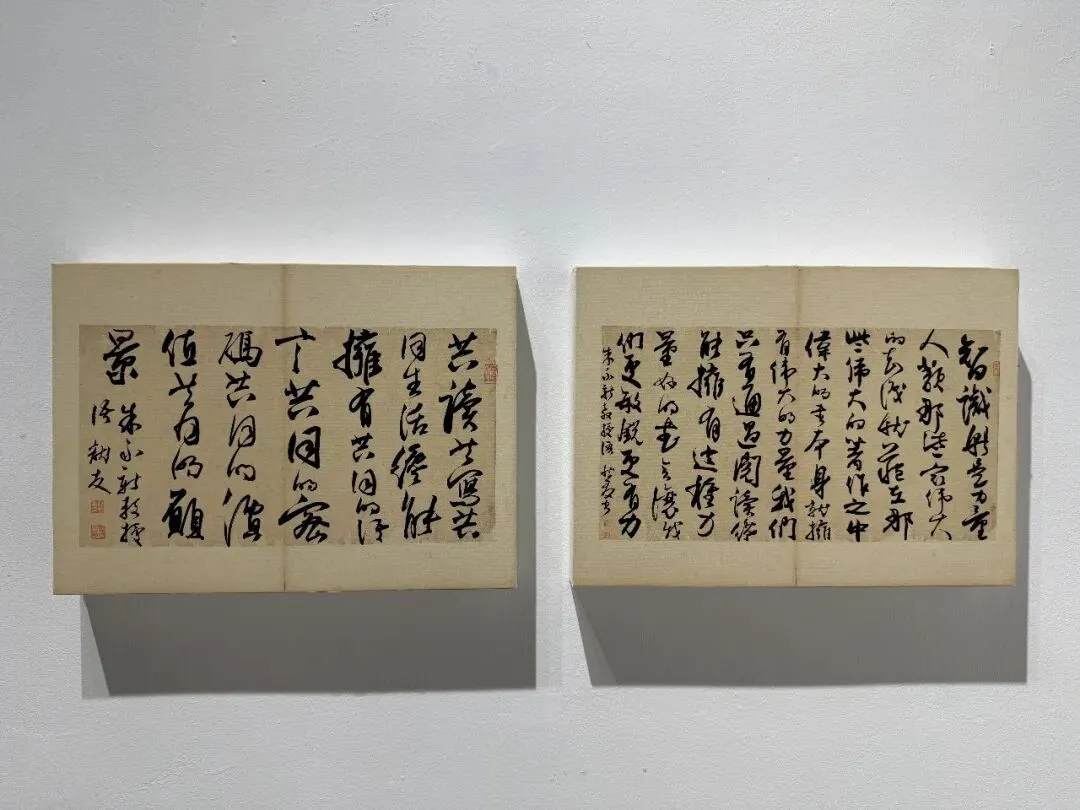 智識就是力量
人類那些最偉大
的識就在那
些偉大的著作之中
偉大的書本身就擁
有偉大的力量我們
只有通過閱讀纔
能擁有這種力
量好的書會讓我
們更敏銳更有力
朱永新教授語
共讀共寫共
同生活纔能
擁有共同的語
言共同的密
碼共同的價
值共同的願
景
朱永新教授
語